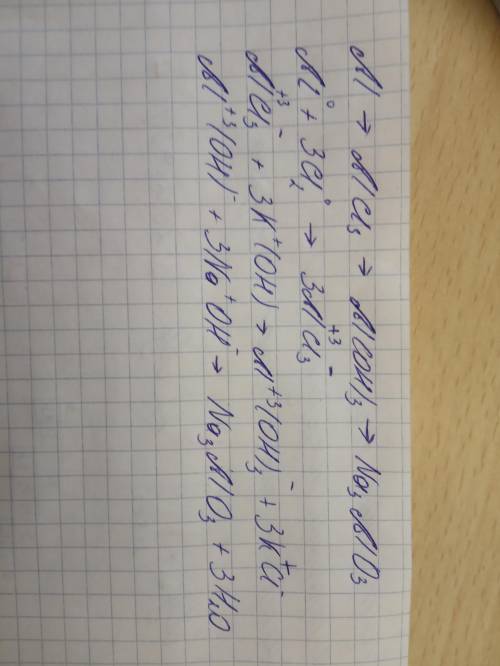 Al → AlCl₃ → Al(OH)₃ → Na₃AlO₃
Al⁰ + 3Cl₂⁰ → 3Al⁺³Cl₃⁻
Al⁺³Cl₃⁻ + 3K⁺(OH) → Al⁺³(OH)₃⁻ + 3K⁺Cl⁻
Al⁺³(OH)⁻ + 3Na⁺OH⁻ → Na₃AlO₃ + 3H₂O